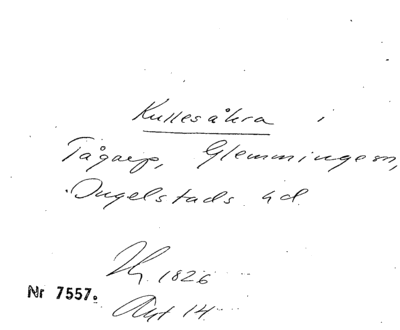 Kullesåkra i
Tågarp, Glemmingem,
Ingelstads hd.
1826
Nr 7557.
Akt 14